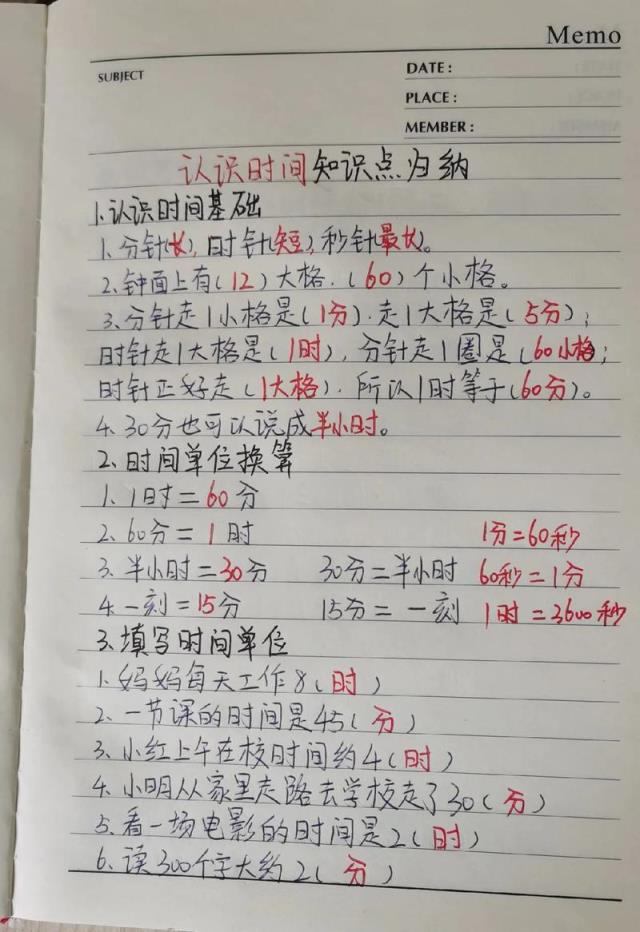 Memo
SUBJECT
DATE:
PLACE:
MEMBER:
认识时间知识点归纳
1.认识时间基础
1、分针(长),时针(短),秒针(最长)。
2、钟面上有(12)大格,(60)个小格。
3、分针走1小格是(1分),走1大格是(5分);
时针走1大格是(1时),分针走1圈是(60小格;
时针正好走(1大格),所以1时等于(60分)。
4、30分也可以说成半小时。
2、时间单位换算
1、1时=60分
2、60分=1时 1分=60秒
3、半小时=30分 30分=半小时 60秒=1分
4、一刻=15分 15分=一刻 1时=3600秒
3、填写时间单位
1、妈妈每天工作8(时)
2、一节课的时间是45(分)
3、小红上午在校时间约4(时)
4、小明从家里走路去学校走了30(分)
5、看一场电影的时间是2(时)
6、读300个字大约2(分)